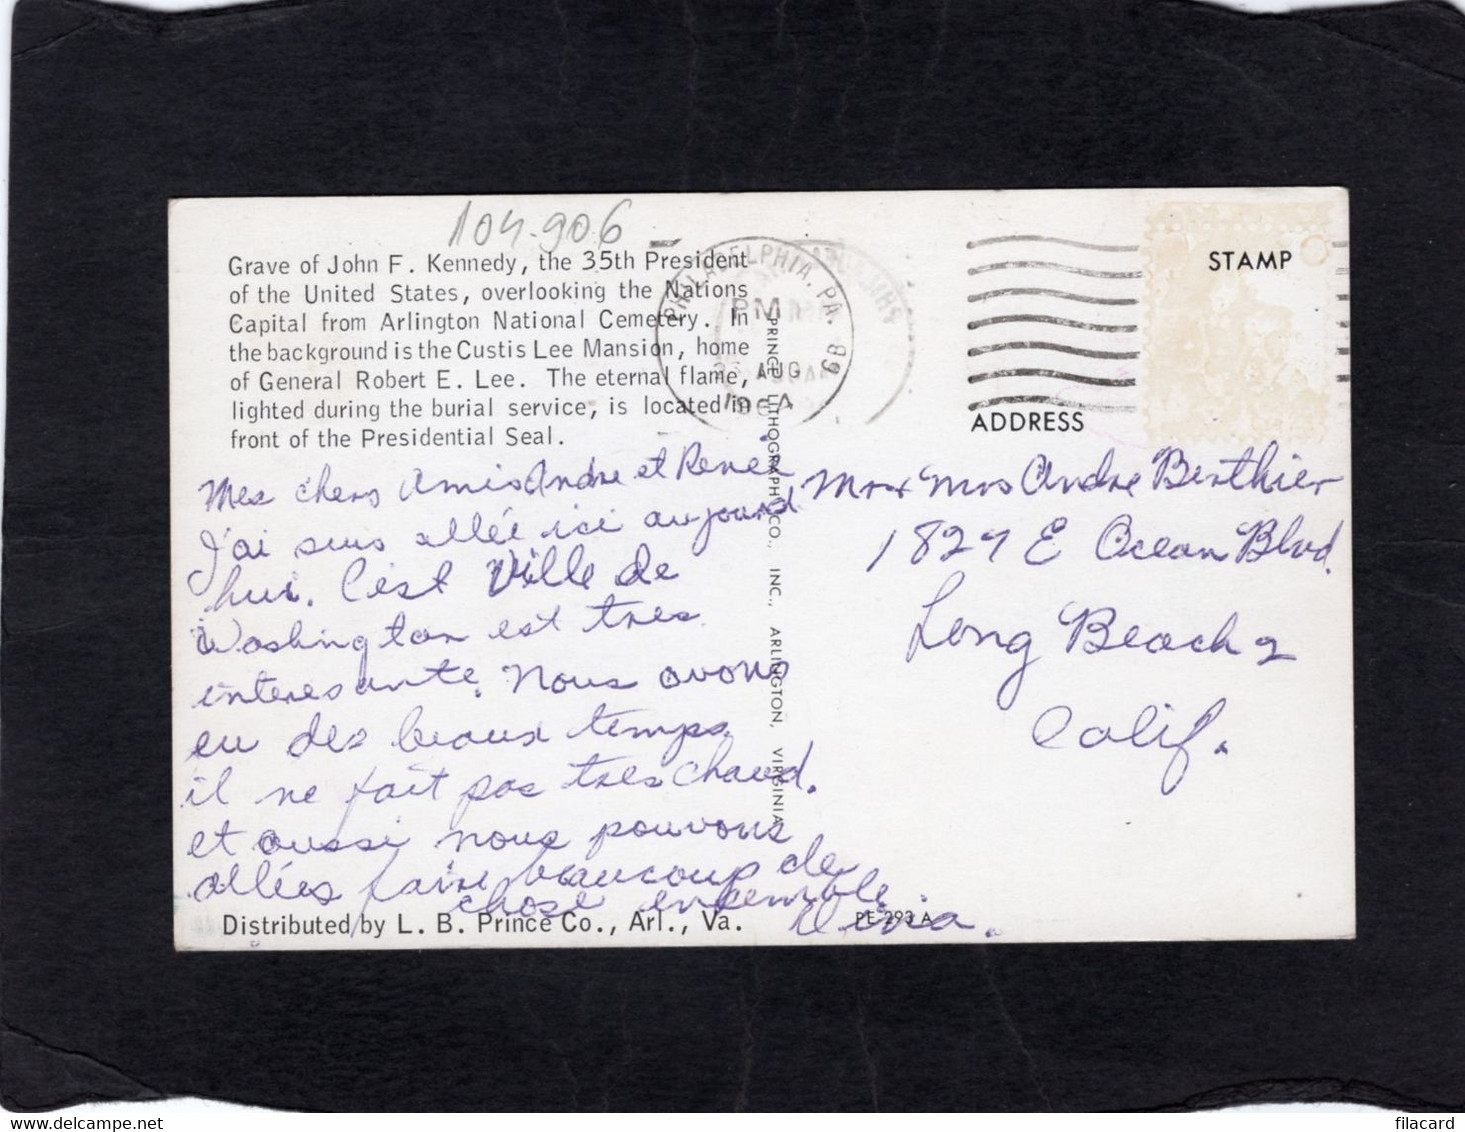 104-906
Grave of John F. Kennedy, the 35th President
of the United States, overlooking the Nations
Capital from Arlington National Cemetery. In
the background is the Custis Lee Mansion, home
of General Robert E. Lee. The eternal flame,
lighted during the burial service, is located in
front of the Presidential Seal.
PHILADELPHIA. PA.
PM
AUG
STAMP
ADDRESS
Mes chers Amis Andre et Renée
J'ai suis allée ici aujourd
hui. C'est Ville de
Washington est tres
interesante. Nous avons
eu des beaux temps
il ne fait pas tres chaud.
et aussi nous pouvons
allées faire beaucoup de
chose ensemble
Mr & Mrs Andre Berthier
1827 E Ocean Blvd.
Long Beach 2
Calif.
PRINCE LITHOGRAPH CO., INC., ARLINGTON, VIRGINIA
Distributed by L. B. Prince Co., Arl., Va.
PE 293 A
filacard
www.delcampe.net